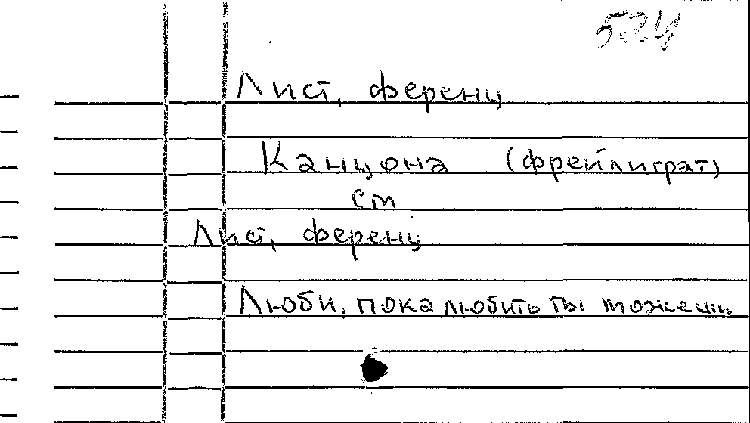 524
Лист, ференц
Канцона (фрейлиграт)
см
Лист, ференц
Люби, пока любить ты можешь